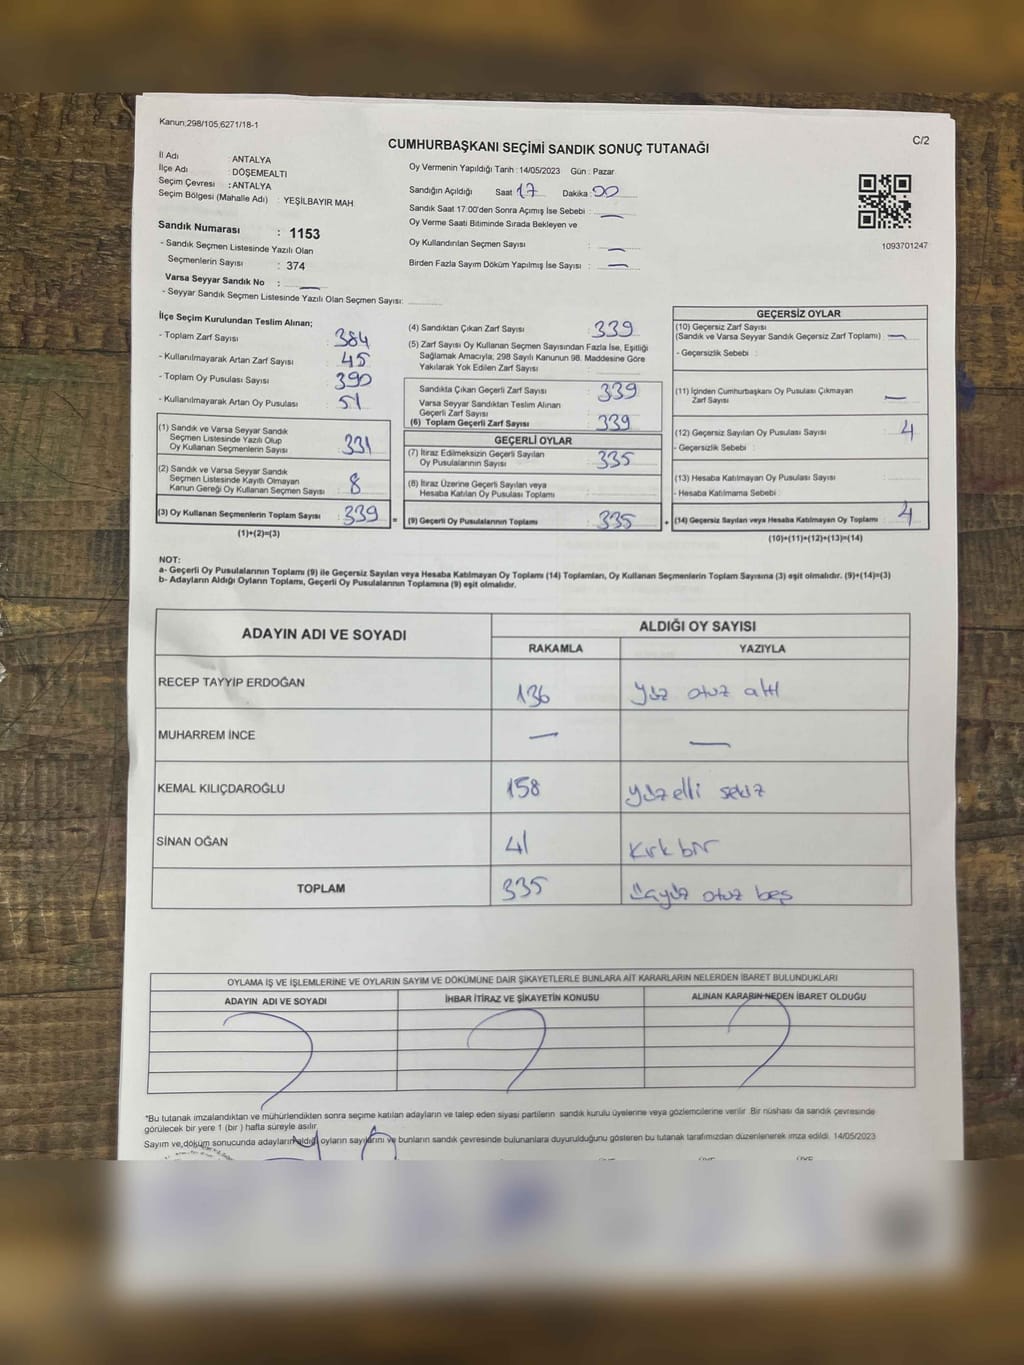 Kanun;298/105,6271/18-1
C/2
CUMHURBAŞKANI SEÇİMİ SANDIK SONUÇ TUTANAĞI
İl Adı : ANTALYA
İlçe Adı : DÖŞEMEALTI
Seçim Çevresi : ANTALYA
Seçim Bölgesi (Mahalle Adı) : YEŞİLBAYIR MAH
Sandık Numarası : 1153
- Sandık Seçmen Listesinde Yazılı Olan
Seçmenlerin Sayısı : 374
Varsa Seyyar Sandık No : —
- Seyyar Sandık Seçmen Listesinde Yazılı Olan Seçmen Sayısı:
Oy Vermenin Yapıldığı Tarih : 14/05/2023 Gün : Pazar
Sandığın Açıldığı Saat 17 Dakika 00
Sandık Saat 17:00'den Sonra Açımış İse Sebebi : —
Oy Verme Saati Bitiminde Sırada Bekleyen ve
Oy Kullandırılan Seçmen Sayısı : —
Birden Fazla Sayım Döküm Yapılmış İse Sayısı : —
1093701247
İlçe Seçim Kurulundan Teslim Alınan;
- Toplam Zarf Sayısı : 384
- Kullanılmayarak Artan Zarf Sayısı : 45
- Toplam Oy Pusulası Sayısı : 390
- Kullanılmayarak Artan Oy Pusulası : 51
(1) Sandık ve Varsa Seyyar Sandık
Seçmen Listesinde Yazılı Olup
Oy Kullanan Seçmenlerin Sayısı : 331
(2) Sandık ve Varsa Seyyar Sandık
Seçmen Listesinde Kayıtlı Olmayan
Kanun Gereği Oy Kullanan Seçmen Sayısı : 8
(3) Oy Kullanan Seçmenlerin Toplam Sayısı : 339 =
(1)+(2)=(3)
(4) Sandıktan Çıkan Zarf Sayısı : 339
(5) Zarf Sayısı Oy Kullanan Seçmen Sayısından Fazla İse, Eşitliği
Sağlamak Amacıyla; 298 Sayılı Kanunun 98. Maddesine Göre
Yakılarak Yok Edilen Zarf Sayısı :
Sandıkta Çıkan Geçerli Zarf Sayısı : 339
Varsa Seyyar Sandıktan Teslim Alınan
Geçerli Zarf Sayısı :
(6) Toplam Geçerli Zarf Sayısı : 339
GEÇERLİ OYLAR
(7) İtiraz Edilmeksizin Geçerli Sayılan
Oy Pusulalarının Sayısı : 335
(8) İtiraz Üzerine Geçerli Sayılan veya
Hesaba Katılan Oy Pusulası Toplamı :
(9) Geçerli Oy Pusulalarının Toplamı : 335 +
GEÇERSİZ OYLAR
(10) Geçersiz Zarf Sayısı
(Sandık ve Varsa Seyyar Sandık Geçersiz Zarf Toplamı) : —
- Geçersizlik Sebebi :
(11) İçinden Cumhurbaşkanı Oy Pusulası Çıkmayan
Zarf Sayısı : —
(12) Geçersiz Sayılan Oy Pusulası Sayısı : 4
- Geçersizlik Sebebi :
(13) Hesaba Katılmayan Oy Pusulası Sayısı :
- Hesaba Katılmama Sebebi :
(14) Geçersiz Sayılan veya Hesaba Katılmayan Oy Toplamı : 4
(10)+(11)+(12)+(13)=(14)
NOT:
a- Geçerli Oy Pusulalarının Toplamı (9) ile Geçersiz Sayılan veya Hesaba Katılmayan Oy Toplamı (14) Toplamları, Oy Kullanan Seçmenlerin Toplam Sayısına (3) eşit olmalıdır. (9)+(14)=(3)
b- Adayların Aldığı Oyların Toplamı, Geçerli Oy Pusulalarının Toplamına (9) eşit olmalıdır.
ADAYIN ADI VE SOYADI
ALDIĞI OY SAYISI
RAKAMLA YAZIYLA
RECEP TAYYİP ERDOĞAN 136 Yüz otuz altı
MUHARREM İNCE — —
KEMAL KILIÇDAROĞLU 158 yüzelli sekiz
SİNAN OĞAN 41 Kırk bir
TOPLAM 335 üçyüz otuz beş
OYLAMA İŞ VE İŞLEMLERİNE VE OYLARIN SAYIM VE DÖKÜMÜNE DAİR ŞİKAYETLERLE BUNLARA AİT KARARLARIN NELERDEN İBARET BULUNDUKLARI
ADAYIN ADI VE SOYADI İHBAR İTİRAZ VE ŞİKAYETİN KONUSU ALINAN KARARIN NEDEN İBARET OLDUĞU
*Bu tutanak imzalandıktan ve mühürlendikten sonra seçime katılan adayların ve talep eden siyasi partilerin sandık kurulu üyelerine veya gözlemcilerine verilir. Bir nüshası da sandık çevresinde
görülecek bir yere 1 (bir ) hafta süreyle asılır.
Sayım ve döküm sonucunda adayların aldığı oyların sayılarını ve bunların sandık çevresinde bulunanlara duyurulduğunu gösteren bu tutanak tarafımızdan düzenlenerek imza edildi. 14/05/2023